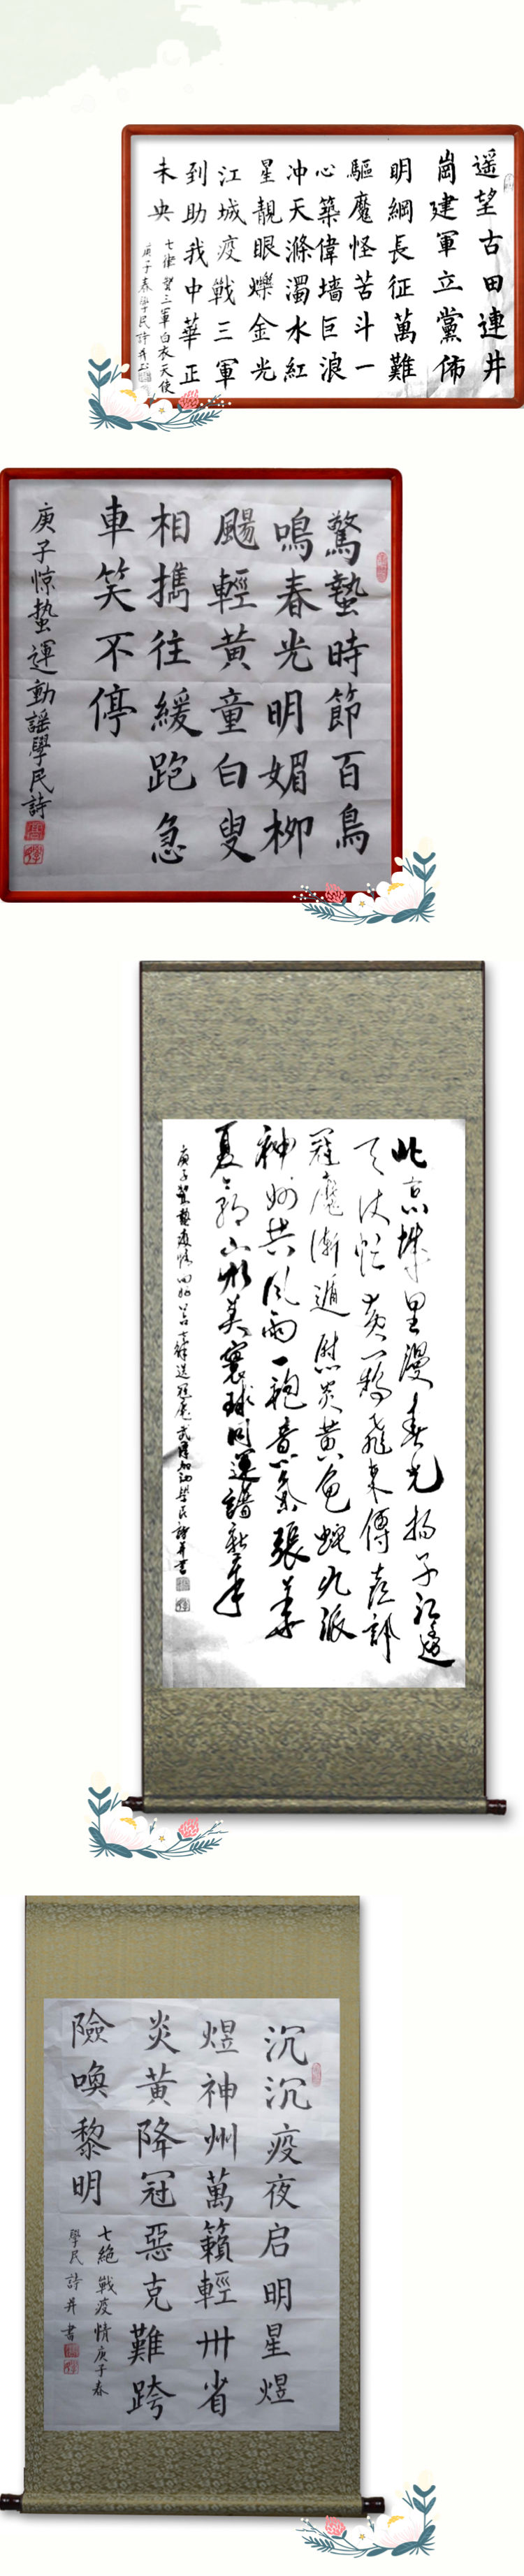 遥望古田連井
崗建軍立黨佈
明綱長征萬難
驅魔怪苦斗一
心築偉墙巨浪
冲天滌濁水紅
星靚眼爍金光
江城疫戰三軍
到助我中華正
未央
七律 贊三軍白衣天使
庚子春學民詩并书
驚蟄時節百鳥
鳴春光明媚柳
颺輕黄童白叟
相攜往緩跑急
車笑不停
庚子惊蛰運動謡學民詩
此京城里漫春光揚子江邊
天使忙黄鹤飛來傳喜訊
冠魔漸遁慰炎黄龜蛇九派
神州共風雨一袍意气張華
夏之邦山水美寰球同運譜新章
沉沉疫夜启明星煜
煜神州萬籟輕卅省
炎黄降冠惡克難跨
險喚黎明
七絶 戰疫情庚子春
學民詩并書